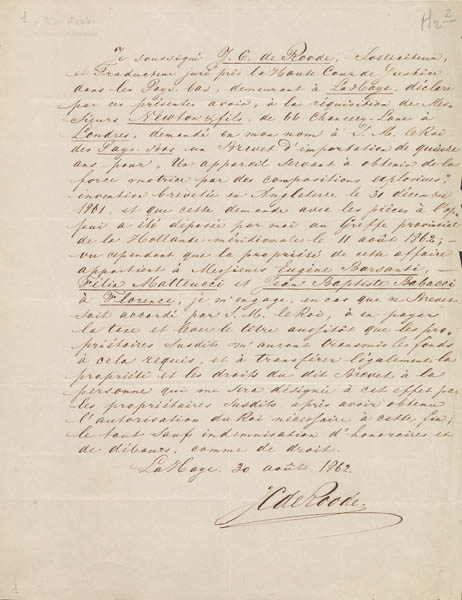 H2 2
Je soussigné J. C. de Roode, Solliciteur,
et Traducteur juré près la Haute Cour de Justice
dans les Pays-bas, demeurant à La Haye, déclare
par ces présentes, avoir, à la réquisition de Mes-
sieurs Newton & fils, de 66 Chancery-Lane à
Londres, demandé en mon nom à S. M. le Roi
des Pays-Bas un Brevet d'importation de quinze
ans pour "Un appareil servant à obtenir de la
force motrice par des compositions explosives",
invention brevetée en Angleterre le 30 décembre
1861, et que cette demande avec les pièces à l'ap-
pui a été déposée par moi au Greffe provincial
de la Hollande méridionale le 11 août 1862; –
vu cependant que la propriété de cette affaire
appartient à Messieurs Eugène Barsanti, –
Félix Matteucci et Jean Baptiste Babacci
à Florence, je m'engage, en cas que ce Brevet
soit accordé par S. M. le Roi, à en payer
la taxe et lever le titre aussitôt que les pro-
priétaires susdits m'auront transmis les fonds
à cela requis, et à transférer légalement la
propriété et les droits du dit Brevet à la
personne qui me sera désignée à cet effet par
les propriétaires susdits après avoir obtenu
l'autorisation du Roi nécessaire à cette fin;
le tout sauf indemnisation d'honoraires et
de débours, comme de droit.
La Haye, 30 août 1862.
JCdeRoode.